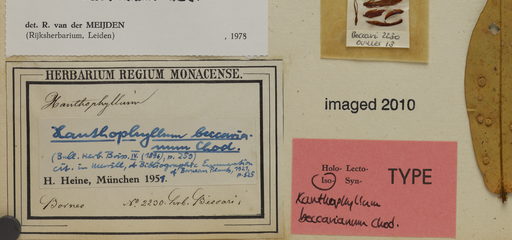 det. R. van der MEIJDEN
(Rijksherbarium, Leiden) , 1978
HERBARIUM REGIUM MONACENSE.
Xanthophyllum
Xanthophyllum beccaria-
num Chod.
(Bull. Herb. Boiss. IV (1896), p. 259)
cit. in Merrill, A Bibliographic Enumeration
of Bornean Plants, 1921,
p. 325
H. Heine, München 1951.
Borneo No 2230. Hrb. Beccari;
Beccari 2230
imaged 2010
Holo- Lecto-
Iso- Syn-
TYPE
Xanthophyllum
beccarianum Chod.